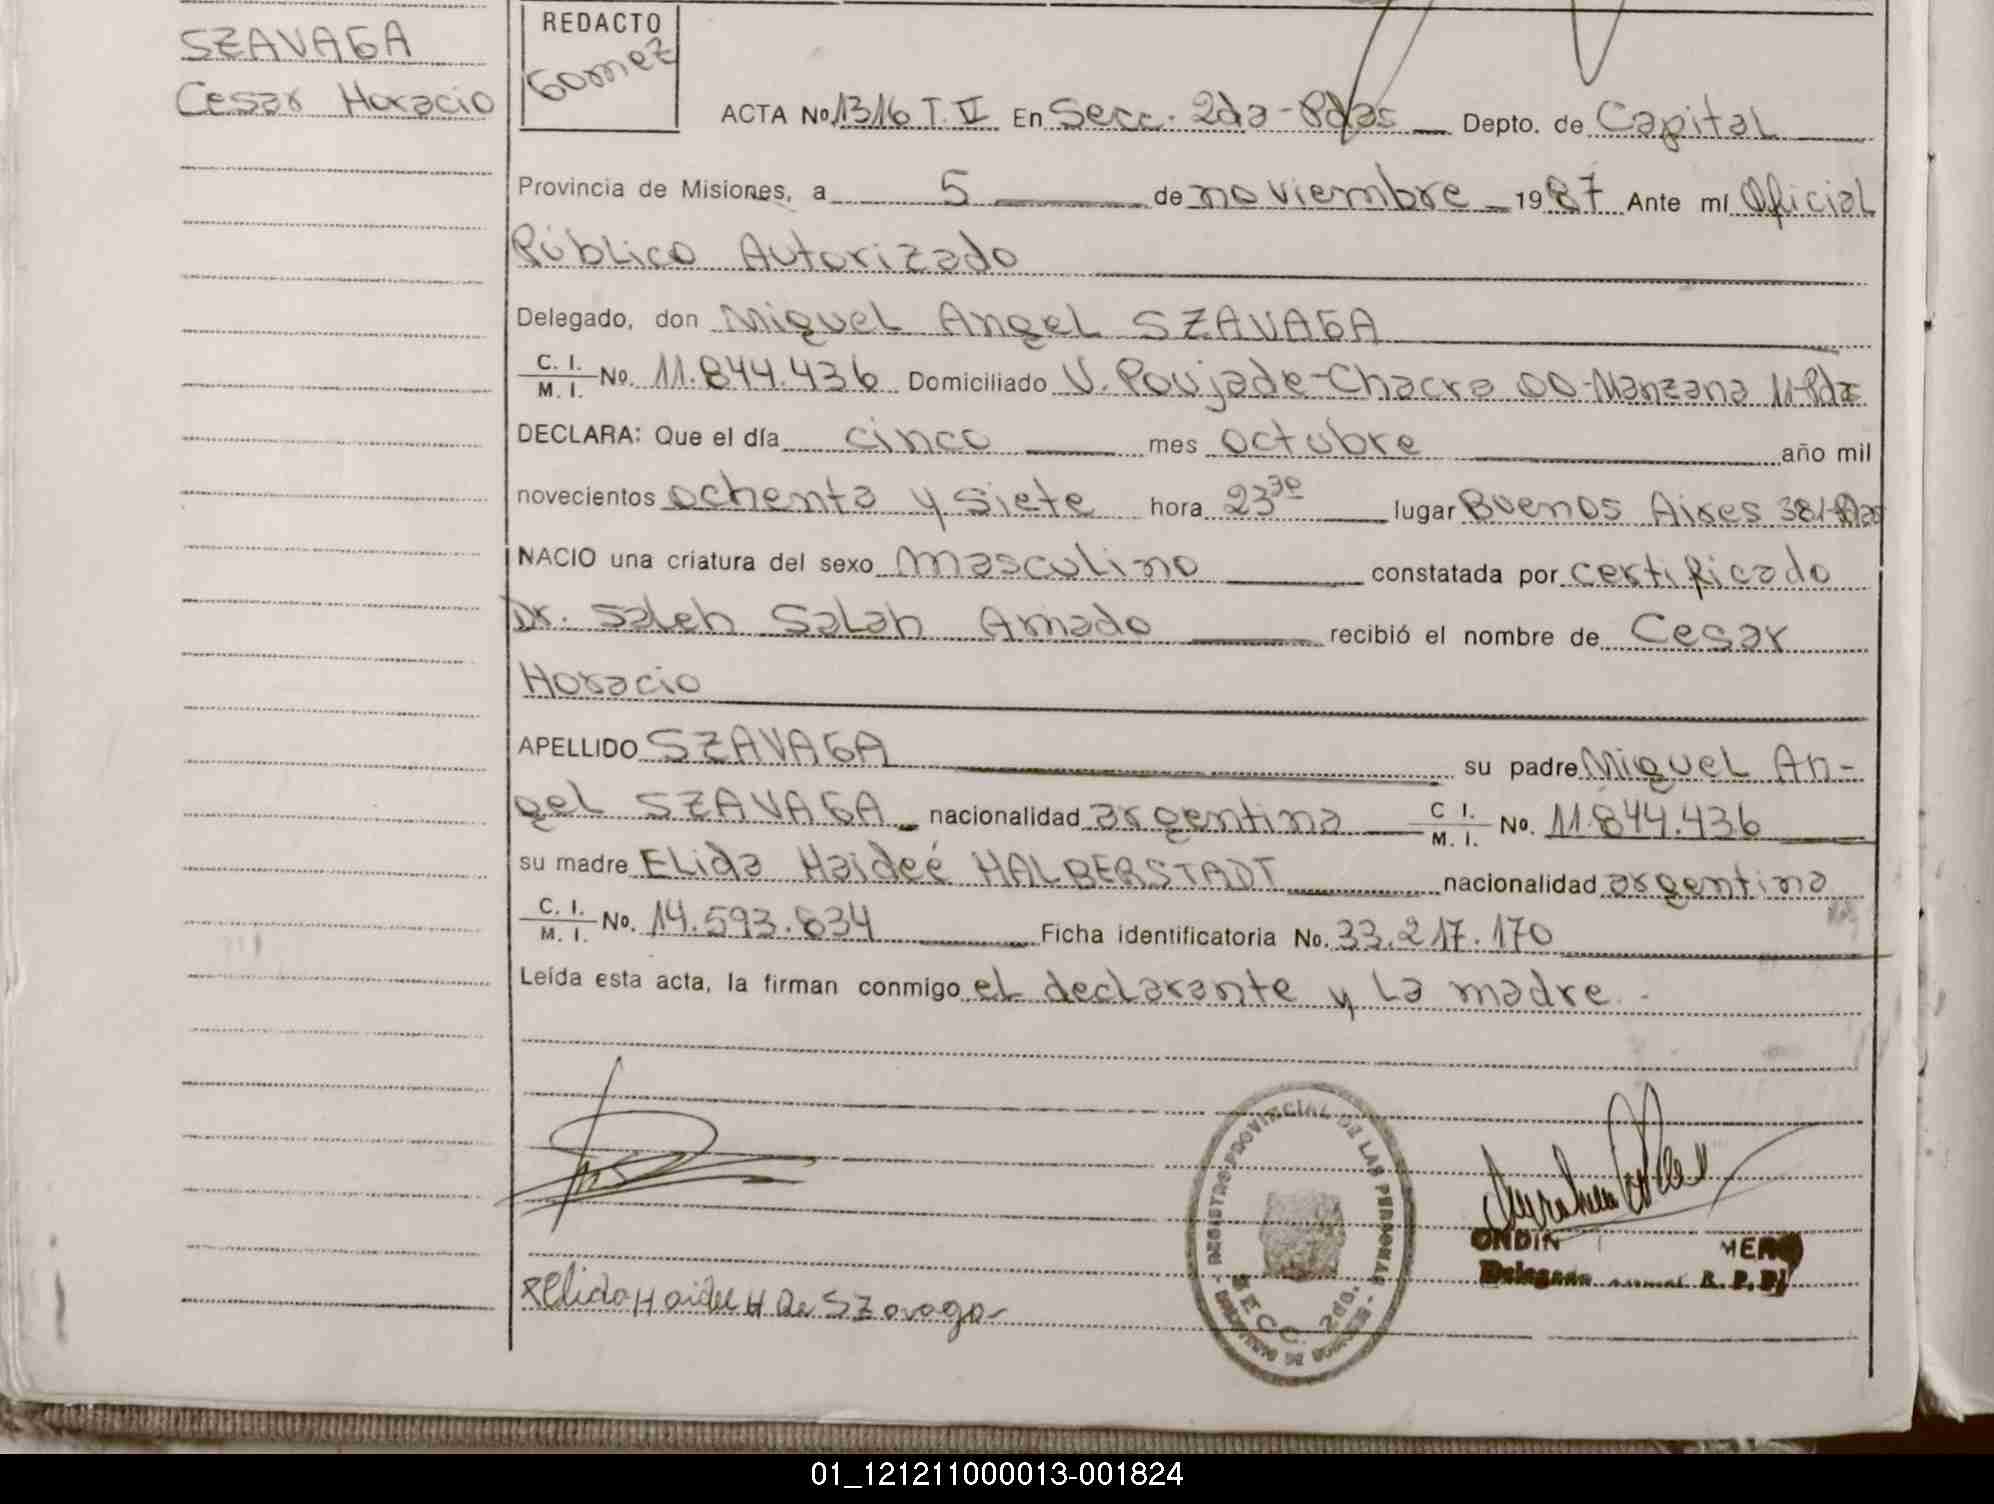 SZAVAGA
Cesar Horacio
REDACTO
Gomez
ACTA No. 1316 T. VI En Secc. 2da - Pdas Depto. de Capital
Provincia de Misiones, a 5 de noviembre 1987 Ante mí Oficial
Público Autorizado
Delegado, don Miguel Angel SZAVAGA
C. I. M. I. No. 11.844.436 Domiciliado V. Poujade-Chacra 00-Manzana 11-Pdas
DECLARA: Que el día cinco mes octubre año mil
novecientos ochenta y siete hora 23 30 lugar Buenos Aires 381-Pdas
NACIO una criatura del sexo masculino constatada por certificado
Dr. Saleh Salah Amado recibió el nombre de Cesar
Horacio
APELLIDO SZAVAGA su padre Miguel An-
gel SZAVAGA nacionalidad argentina C I. M. I. No. 11.844.436
su madre Elida Haideé HALBERSTADT nacionalidad argentina
C. I. M. I. No. 14.593.834 Ficha identificatoria No. 33.217.170
Leída esta acta, la firman conmigo el declarante y la madre.-
REGISTRO PROVINCIAL DE LAS PERSONAS
SECC. 2da.
Elida Haidee H de Szavaga
R. P. P.
01_121211000013-001824